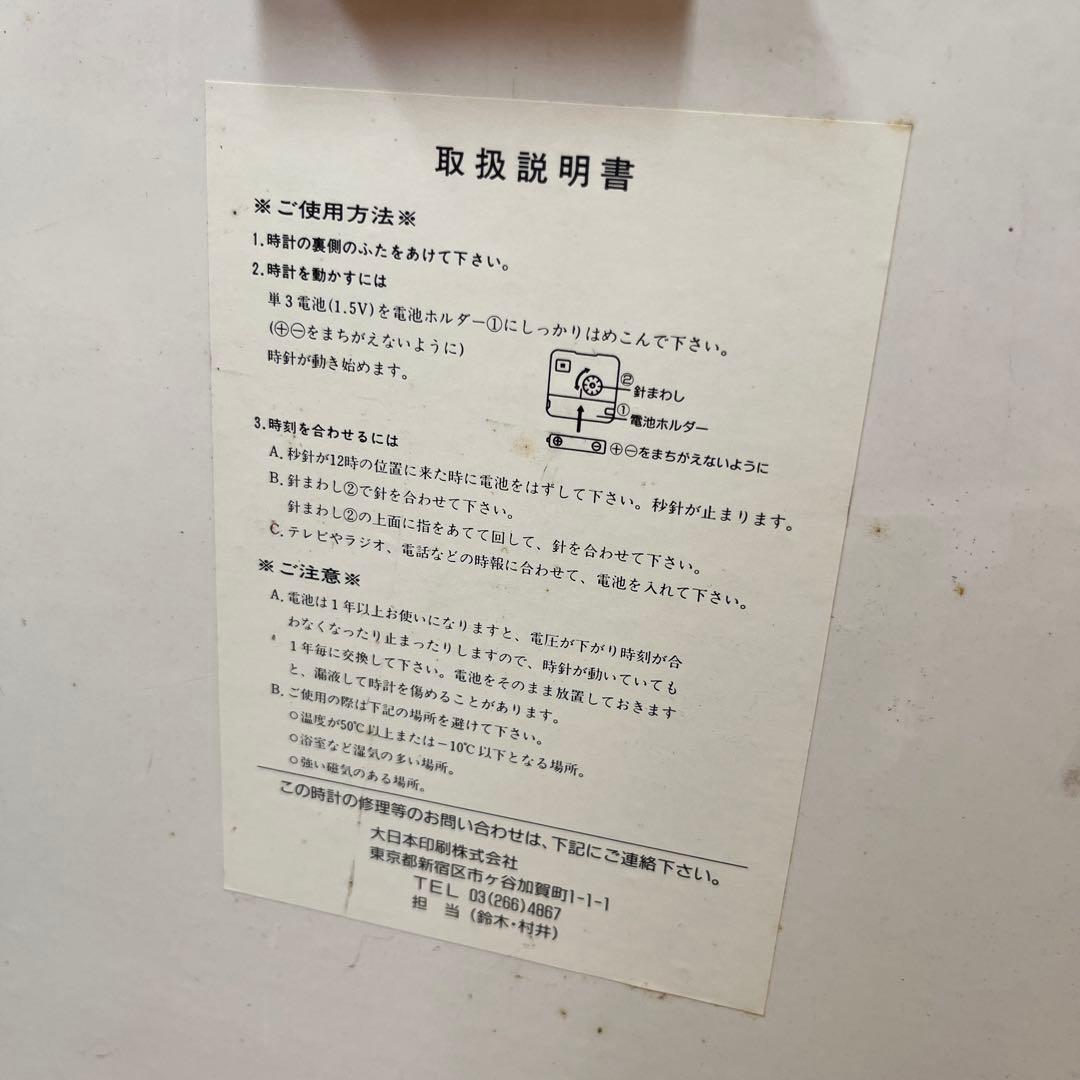 取扱説明書
※ご使用方法※
1.時計の裏側のふたをあけて下さい。
2.時計を動かすには
単3電池(1.5V)を電池ホルダー①にしっかりはめこんで下さい。
(⊕⊖をまちがえないように)
時針が動き始めます。
②
針まわし
①
電池ホルダー
⊕ ⊖
⊕⊖をまちがえないように
3.時刻を合わせるには
A.秒針が12時の位置に来た時に電池をはずして下さい。秒針が止まります。
B.針まわし②で針を合わせて下さい。
針まわし②の上面に指をあてて回して、針を合わせて下さい。
C.テレビやラジオ、電話などの時報に合わせて、電池を入れて下さい。
※ご注意※
A.電池は1年以上お使いになりますと、電圧が下がり時刻が合
わなくなったり止まったりしますので、時針が動いていても
1年毎に交換して下さい。電池をそのまま放置しておきます
と、漏液して時計を傷めることがあります。
B.ご使用の際は下記の場所を避けて下さい。
○温度が50℃以上または−10℃以下となる場所。
○浴室など湿気の多い場所。
○強い磁気のある場所。
この時計の修理等のお問い合わせは、下記にご連絡下さい。
大日本印刷株式会社
東京都新宿区市ヶ谷加賀町1-1-1
TEL 03(266)4867
担 当 (鈴木・村井)